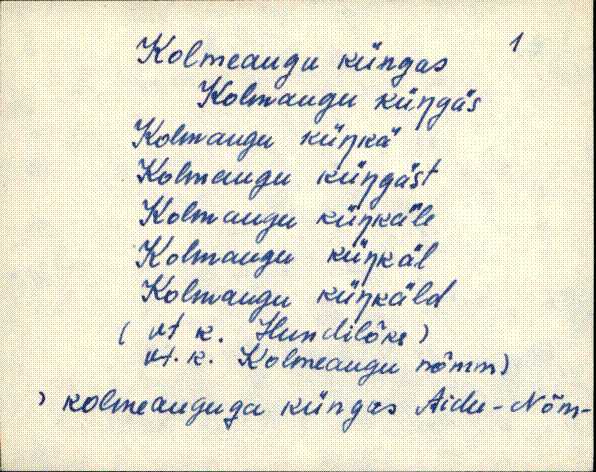 1
Kolmeaugu küngas
Kolmaugu küŋgäs
Kolmaugu küŋkä
Kolmaugu küŋgäst
Kolmaugu küŋkäle
Kolmaugu küŋkäl
Kolmaugu küŋkäld
( vt k. Hundilõke )
vt. k. Kolmeaugu nõmm )
) kolmeauguga küngas Aidu-Nõm-